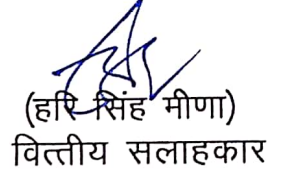 (हरि सिंह मीणा)
वित्तीय सलाहकार